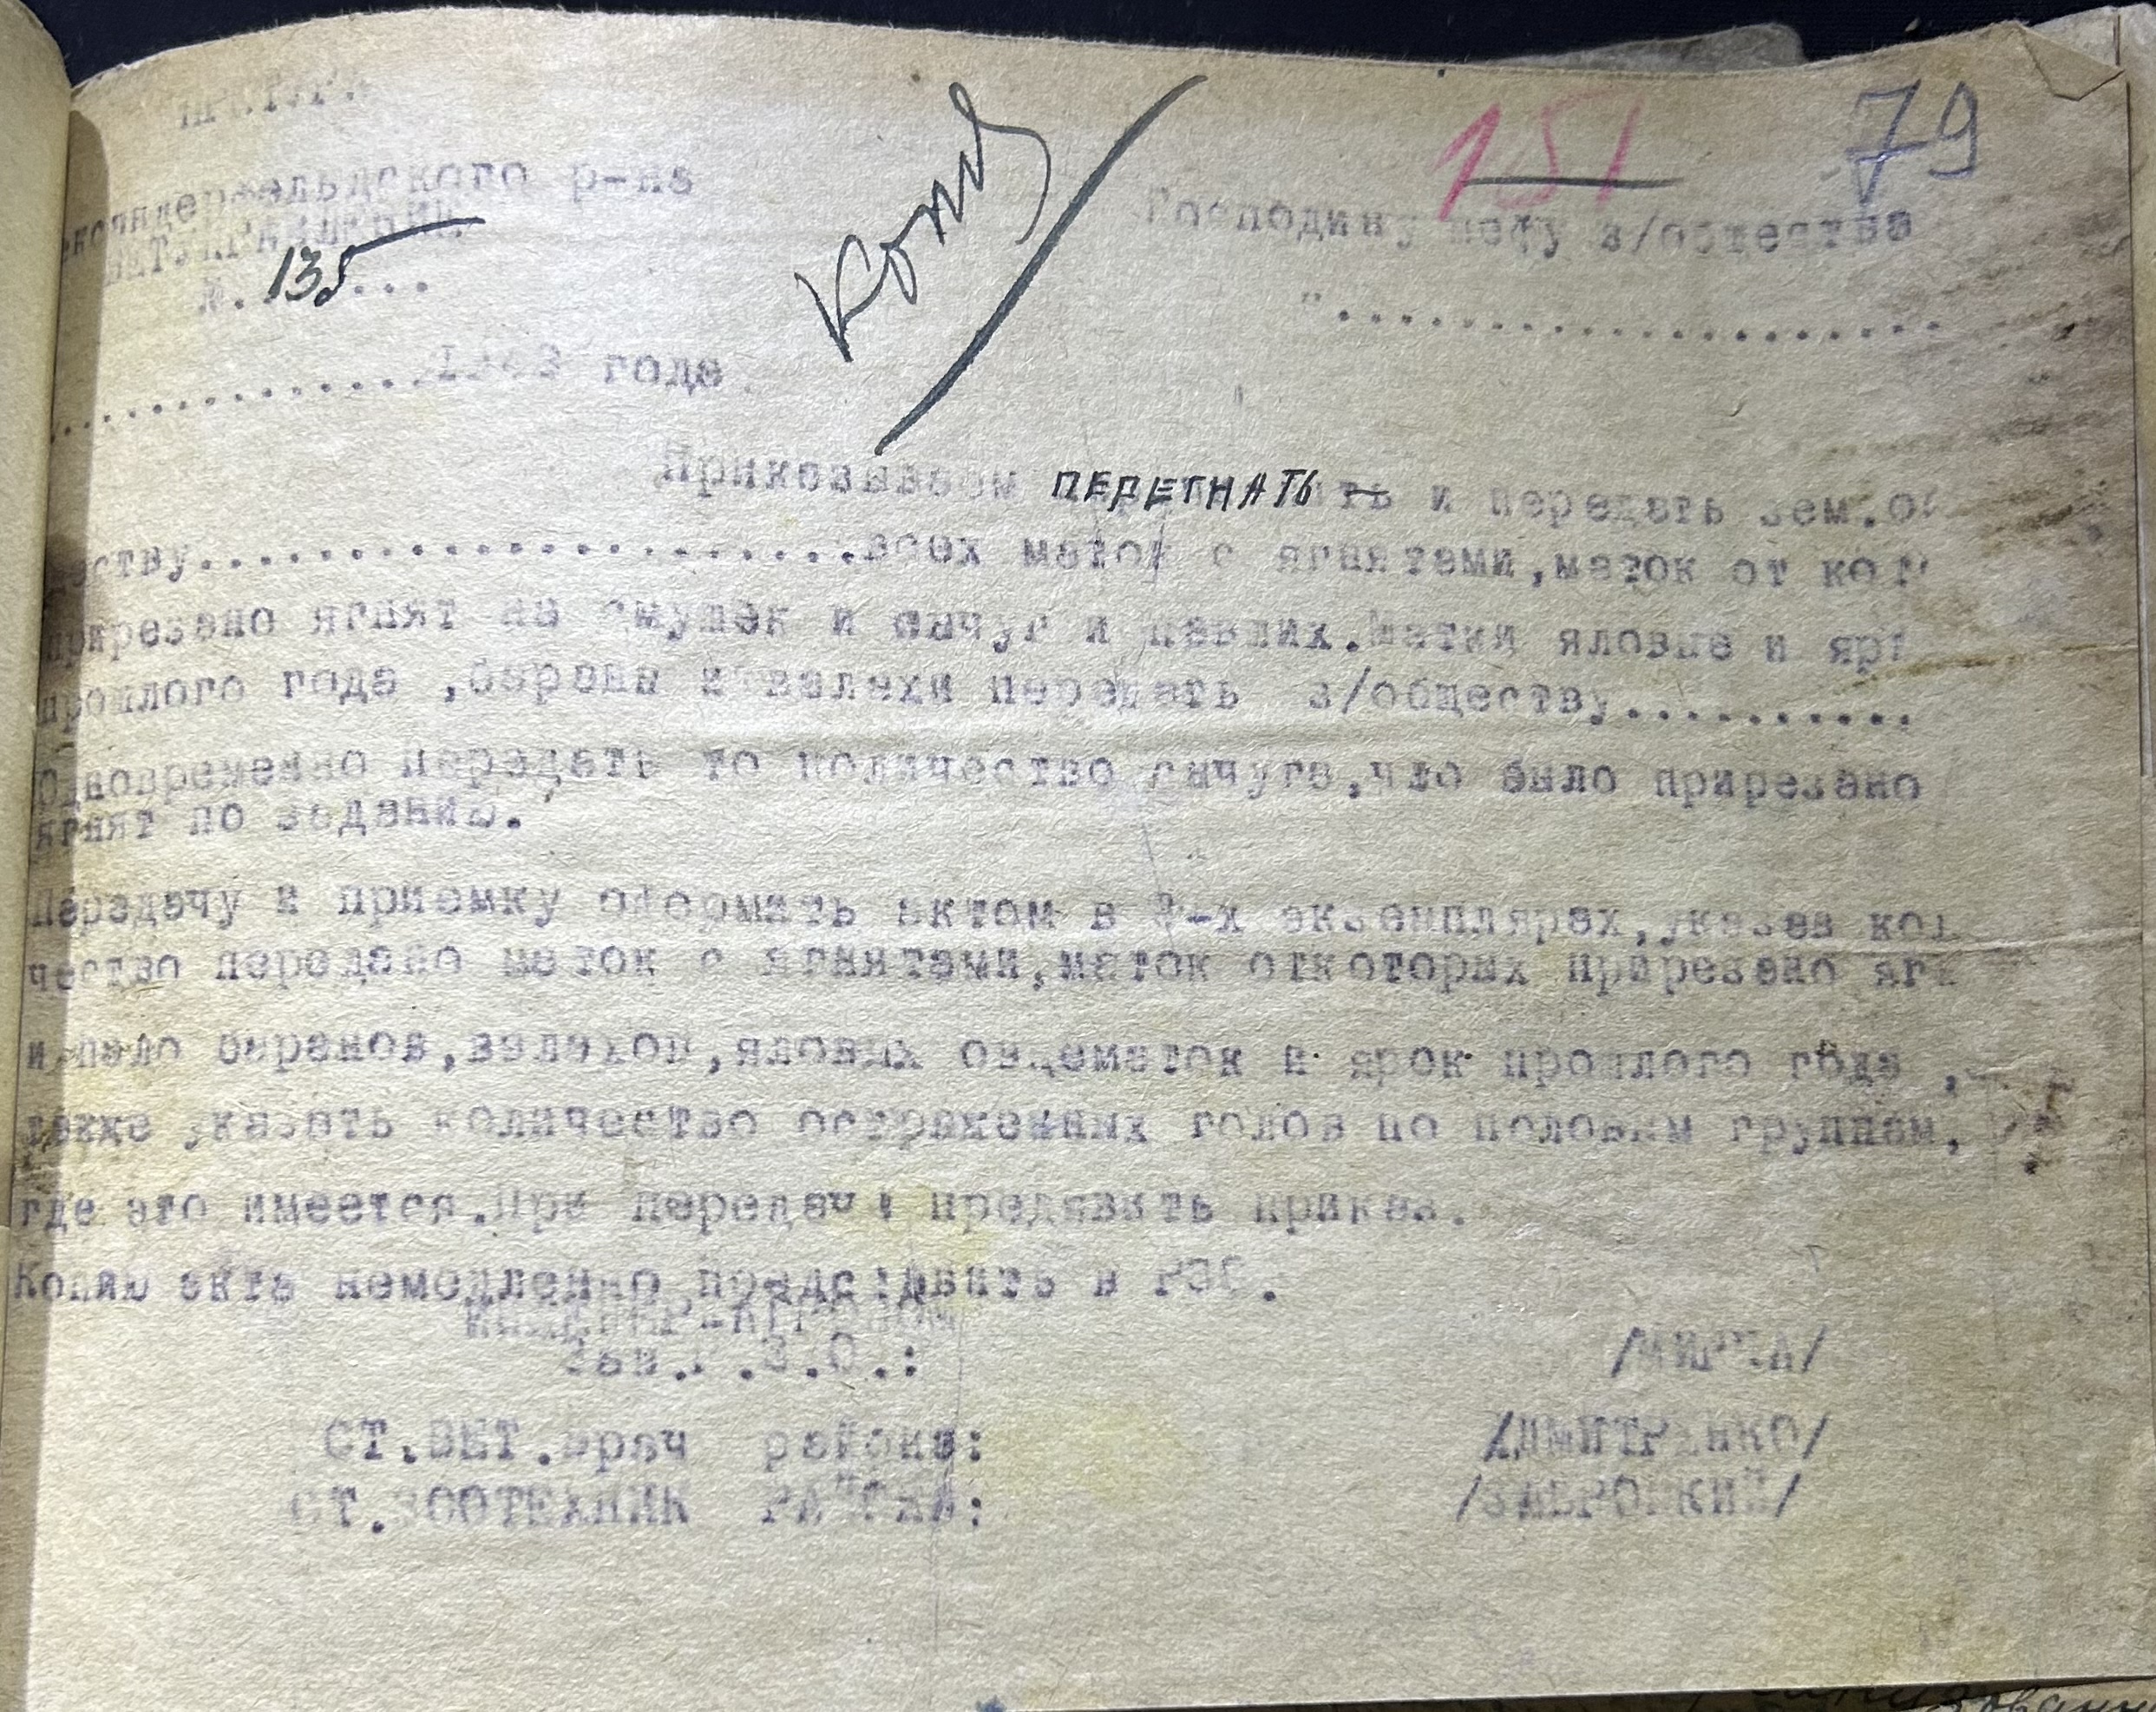 р-на
№. 135...
Копия
151 79
Господину шефу з/общества
"....................
.............1943 года.
Приказываем ПЕРЕГНАТЬ и передать зем.об
ществу......................всех маток с ягнятами,маток от кот
прирезано ягнят на смушек и сычуг и павших.Матки яловые и ярк
прошлого года ,бараны и валахи передать з/обществу..........
Одновременно передать то количество сычуга,что было прирезано
ягнят по заданию.
Передачу и приемку оформать актом в -х экземплярах,указав кол
чество передано маток с ягнятами,маток откоторых прирезано ягн
и пало баранов,валахов,яловых овцематок и ярок прошлого года ,
также указать количество остриженных голов по половым группам,
где это имеется.При передачи предявить приказ.
Копию акта немедленно представить в РЗО.
Зав.Р.З.О.:
СТ.ВЕТ.Врач района: /ДИМИТРЕНКО/
СТ.ЗООТЕХНИК РАЙОНА: